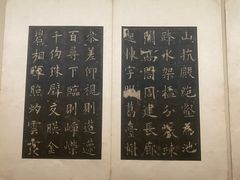 山抗殿絕壑為池
跨水架楹分巖竦
闕高閣周建長廊
起棟宇膠葛臺榭
參差仰視則迢遰
百尋下臨則崢嶸
千仞珠璧交映金
碧相暉照灼雲霞